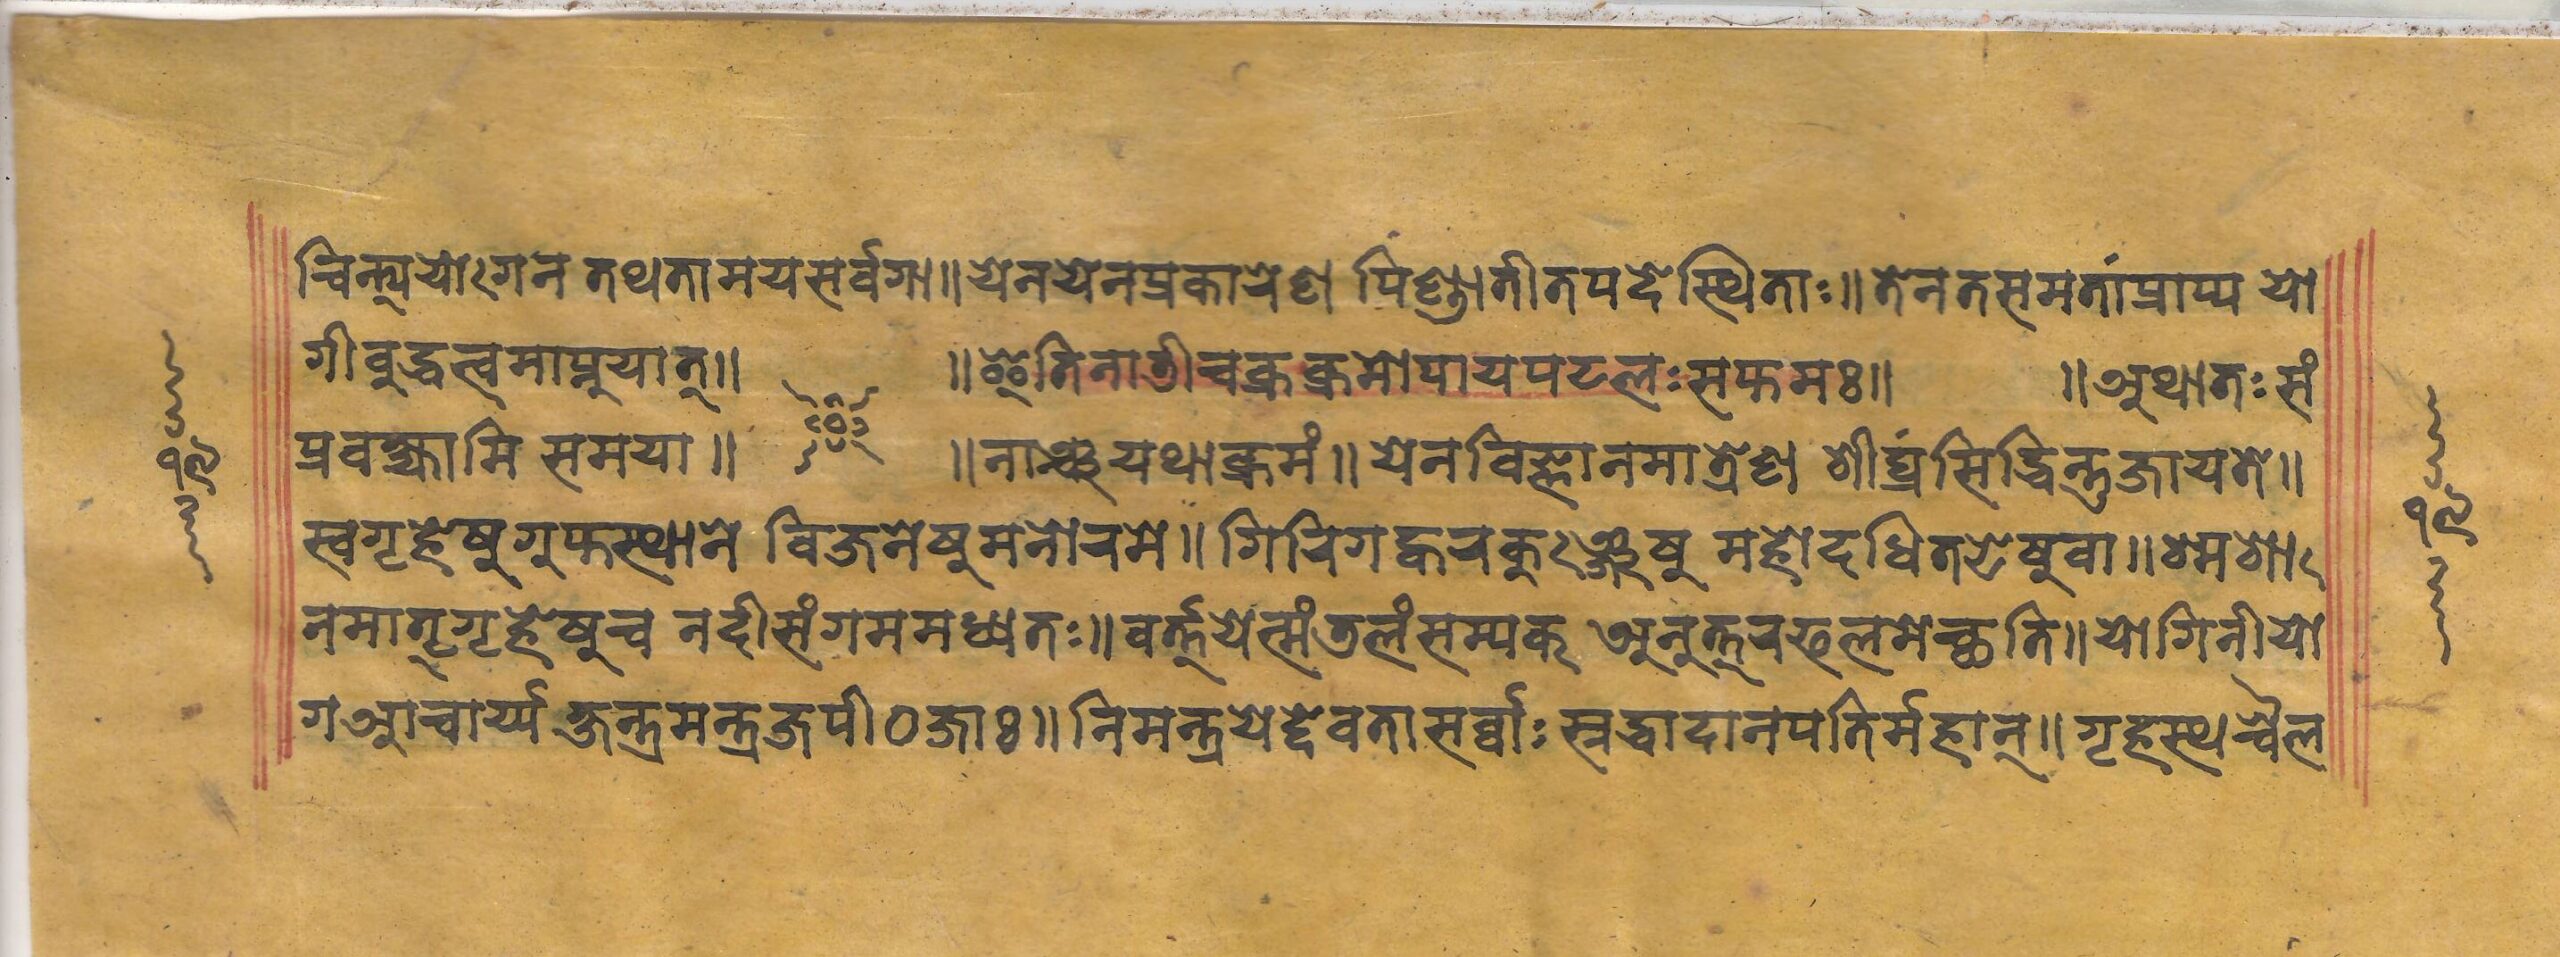 चिन्त्ययोगेन तथतामयसर्वगा॥येनयेनप्रकारेण पिण्डातीतपदेस्थिताः॥तेनतसमतांप्राप्य यो
गीबुद्धत्वमाप्नुयात्॥ ॥इतिनाडीचक्रक्रमोपायपटलःसप्तमः॥ ॥अथातःसं
प्रवक्ष्यामि समया॥ ॥नाञ्चयथाक्रमं॥येनविज्ञानमात्रेण शीघ्रंसिद्धिन्तुजायते॥
स्वगृहेषुगुप्तस्थाने विजनेषुमनोरमे॥गिरिगह्वरकुञ्जेषु महोदधितटेषुवा॥श्मशा
नमातृगृहेषुच नदीसंगममध्यतः॥वर्त्तयेत्मंडलंसम्यक् अनुत्तरफलमेच्छति॥योगिनीयो
गआचार्य्य जन्त्रमन्त्रजपीठजाः॥निमन्त्रयेद्देवतासर्व्वाः स्वद्धादानपतिर्महान्॥गृहस्थचैल
१९
१९